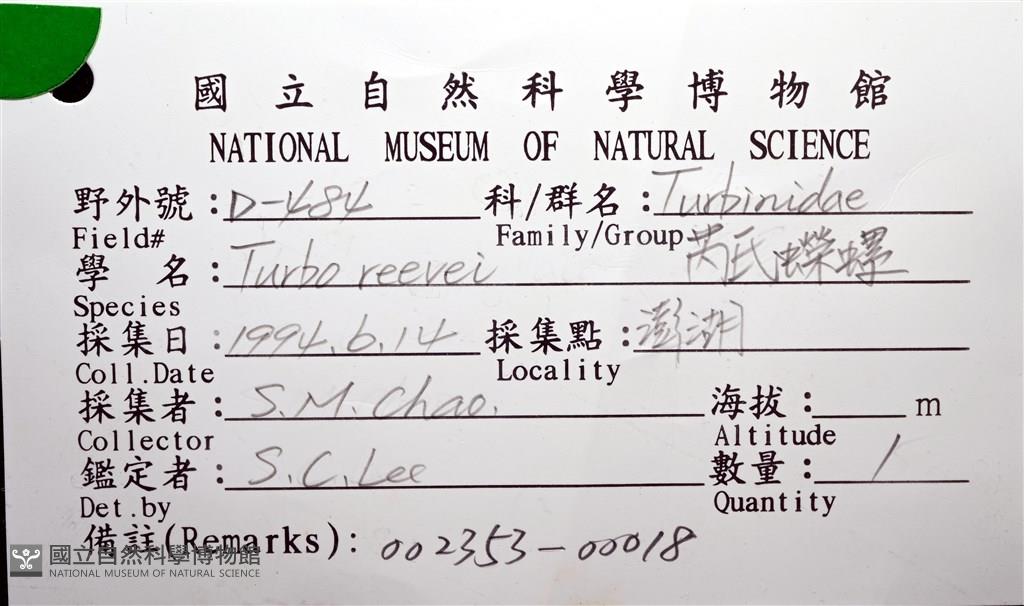 國立自然科學博物館
NATIONAL MUSEUM OF NATURAL SCIENCE
野外號：D-484 科/群名：Turbinidae
Field# Family/Group
學 名：Turbo reevei 芮氏蠑螺
Species
採集日：1994.6.14 採集點：澎湖
Coll.Date Locality
採集者：S.M.Chao. 海拔：____m
Collector Altitude
鑑定者：S.C.Lee 數量：1
Det.by Quantity
備註(Remarks)：002353-00018
國立自然科學博物館
NATIONAL MUSEUM OF NATURAL SCIENCE